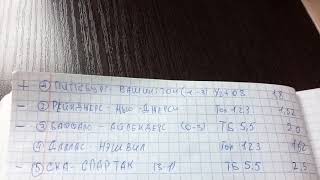 + ① ПИТСБУРГ - ВАШИНГТОН (4-3) 1,8
- ② РЕЙНДЖЕРС - НЬЮ-ДЖЕРСИ Тот 123 1,62
- ③ БАФФАЛО - АЙЛЕНДЕРС ТБ 5,5 2,0
④ ДАЛЛАС - НЭШВИЛ Тот 123
- ⑤ СКА - СПАРТАК ТБ 5,5 2